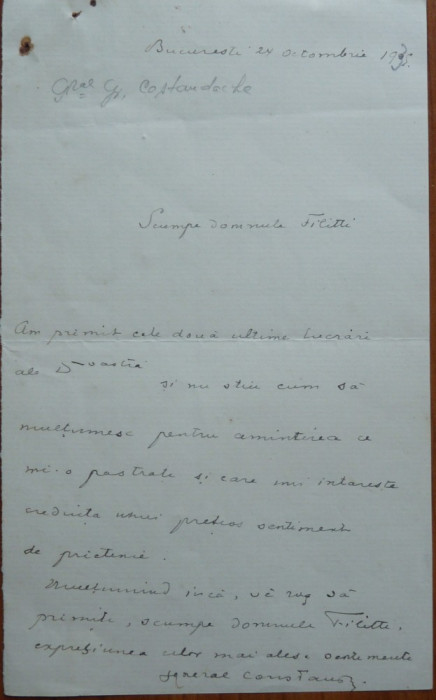 Bucuresti 24 Octombrie 1935.
Gral Gr. Costandache
Scumpe domnule Filitti
Am primit cele două ultime lucrări
ale Dvoastră
și nu stiu cum să
mulțumesc pentru amintirea ce
mi-o pastrati și care imi intareste
credința unui prețios sentiment
de prietenie.
Mulțumind incă, vă rog să
primiți, scumpe domnule Filitti,
expresiunea celor mai alese sentimente
General